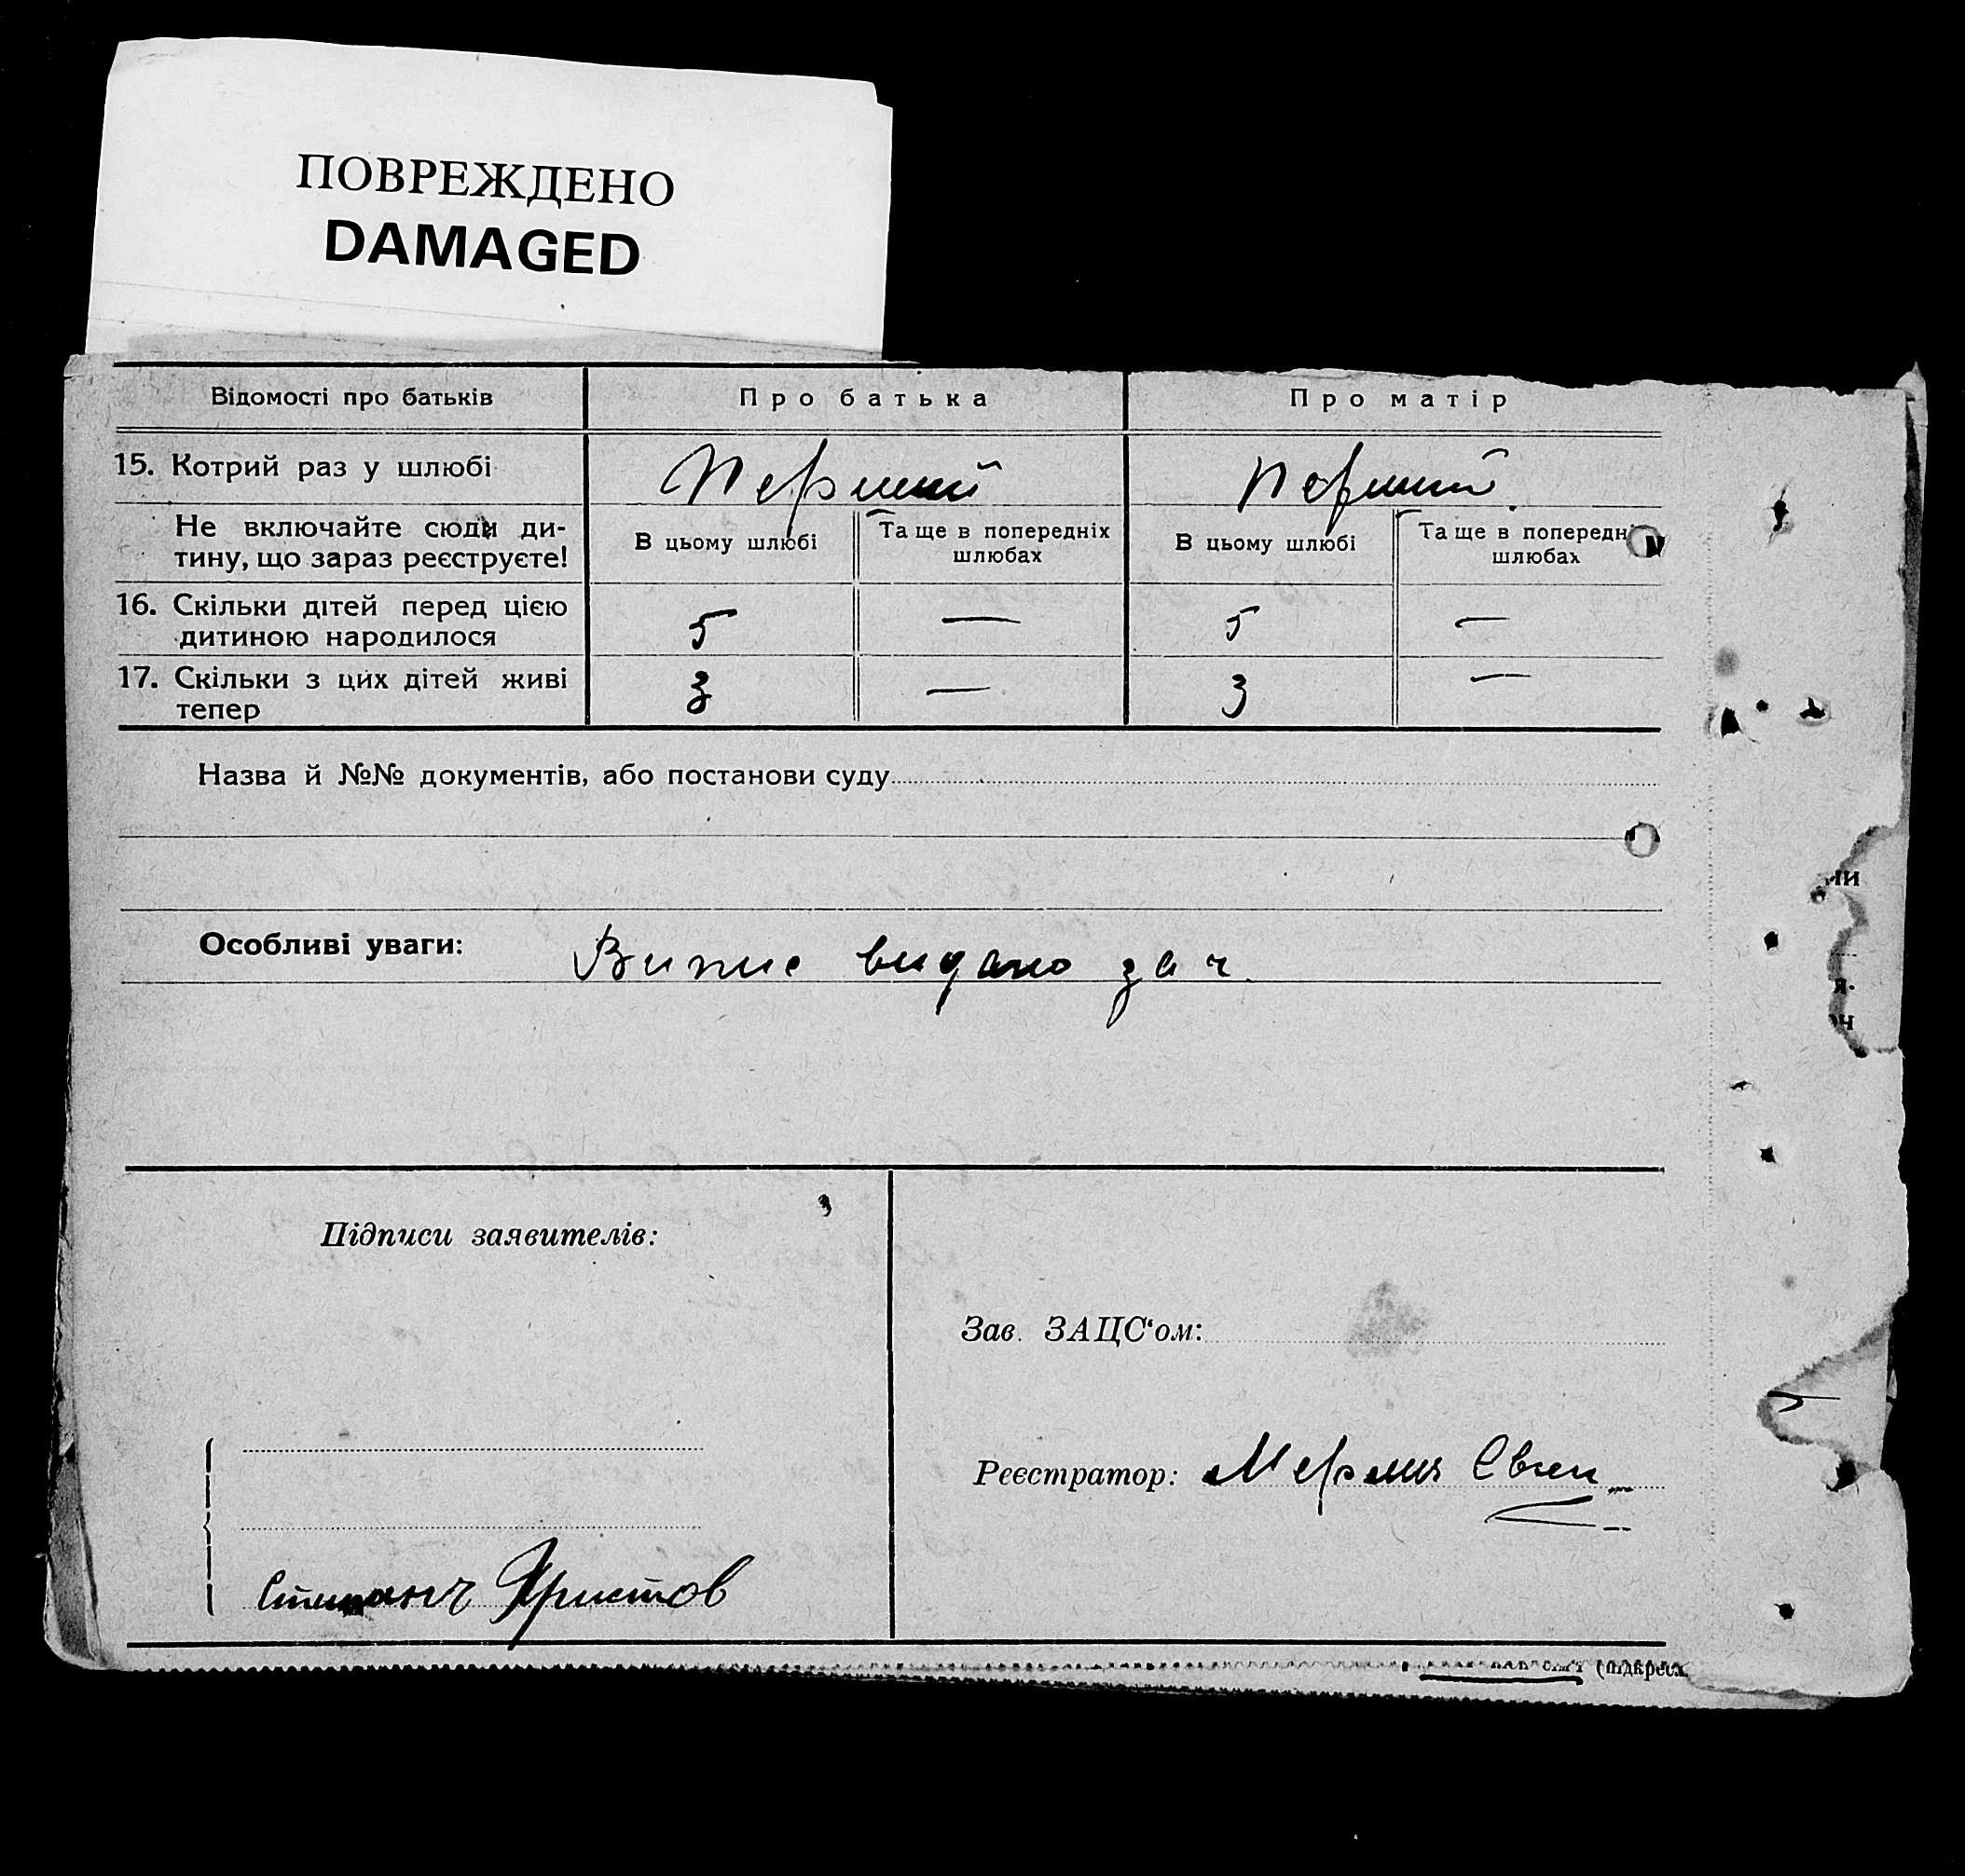 ПОВРЕЖДЕНО
DAMAGED
Відомості про батьків Про батька Про матір
15. Котрий раз у шлюбі Перший Перший
Не включайте сюди ди-
тину, що зараз реєструєте!
В цьому шлюбі Та ще в попередніх шлюбах В цьому шлюбі Та ще в попередн шлюбах
16. Скільки дітей перед цією
дитиною народилося 5 — 5 —
17. Скільки з цих дітей живі
тепер 3 — 3 —
Назва й №№ документів, або постанови суду
Особливі уваги: Випис видано за ч
Підписи заявителів:
Зав. ЗАЦС'ом:
Реєстратор:
Христов
(підкресл